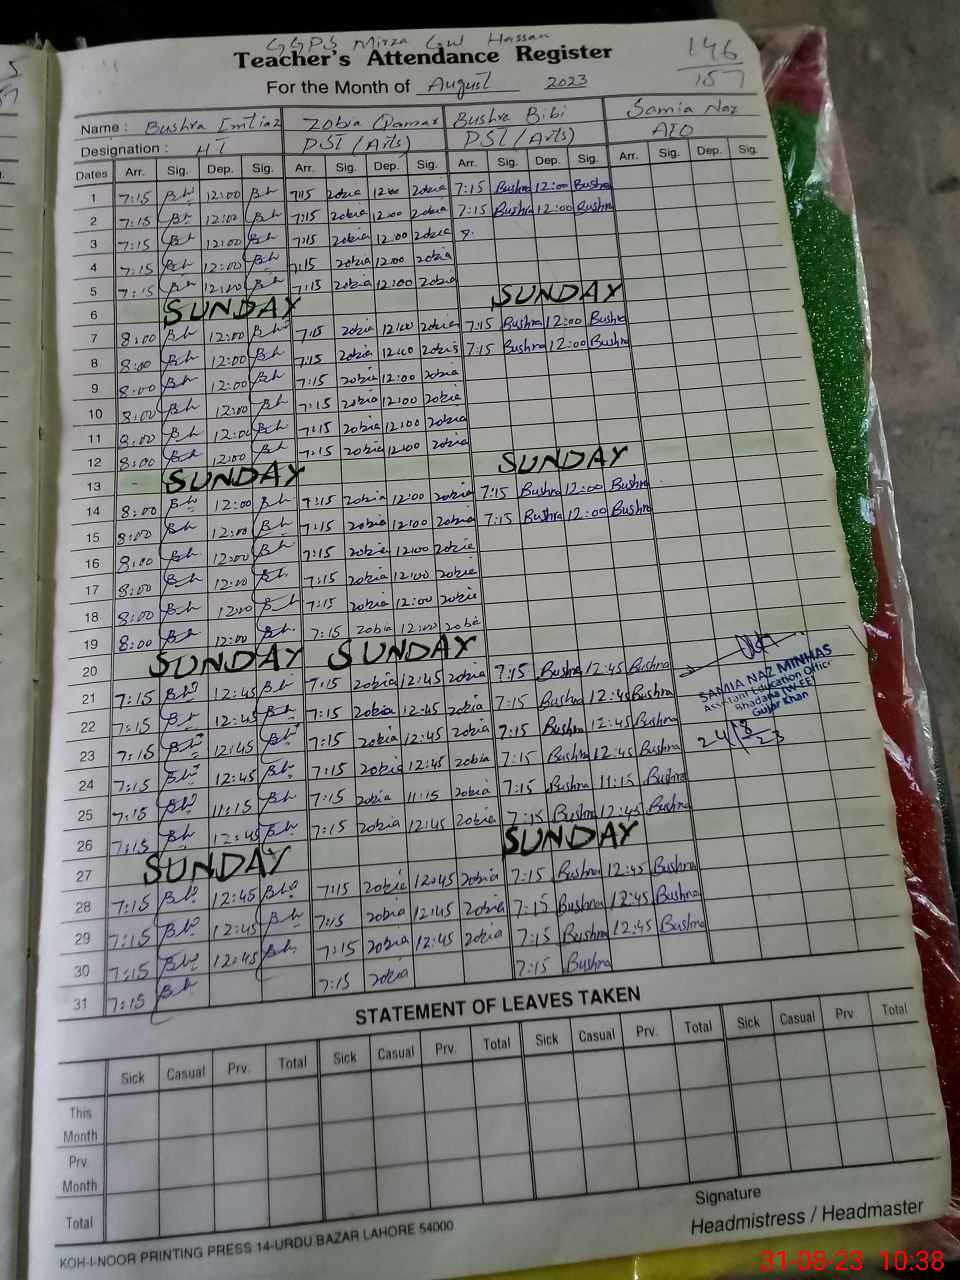 GGPS Mirza G.W Hassan
Teacher's Attendance Register
146
157
For the Month of August 2023
Name : Bushra Imtiaz Zobia Qamar Bushra Bibi Samia Naz
Designation : HT PST (Arts) PST (Arts) AEO
Dates Arr. Sig. Dep. Sig. Arr. Sig. Dep. Sig. Arr. Sig. Dep. Sig. Arr. Sig. Dep. Sig.
1 7:15 12:00 7:15 Zobia 12:00 Zobia 7:15 Bushra 12:00 Bushra
2 7:15 12:00 7:15 Zobia 12:00 Zobia 7:15 Bushra 12:00 Bushra
3 7:15 12:00 7:15 Zobia 12:00 Zobia 8.
4 7:15 12:00 7:15 Zobia 12:00 Zobia
5 7:15 12:00 7:15 Zobia 12:00 Zobia
6 SUNDAY SUNDAY
7 8:00 12:00 7:15 Zobia 12:00 Zobia 7:15 Bushra 12:00 Bushra
8 8:00 12:00 7:15 Zobia 12:00 Zobia 7:15 Bushra 12:00 Bushra
9 8:00 12:00 7:15 Zobia 12:00 Zobia
10 8:00 12:00 7:15 Zobia 12:00 Zobia
11 8:00 12:00 7:15 Zobia 12:00 Zobia
12 8:00 12:00 7:15 Zobia 12:00 Zobia
13 SUNDAY SUNDAY
14 8:00 12:00 7:15 Zobia 12:00 Zobia 7:15 Bushra 12:00 Bushra
15 8:00 12:00 7:15 Zobia 12:00 Zobia 7:15 Bushra 12:00 Bushra
16 8:00 12:00 7:15 Zobia 12:00 Zobia
17 8:00 12:00 7:15 Zobia 12:00 Zobia
18 8:00 12:00 7:15 Zobia 12:00 Zobia
19 8:00 12:00 7:15 Zobia 12:00 Zobia
20 SUNDAY SUNDAY
21 7:15 12:45 7:15 Zobia 12:45 Zobia 7:15 Bushra 12:45 Bushra
22 7:15 12:45 7:15 Zobia 12:45 Zobia 7:15 Bushra 12:45 Bushra
23 7:15 12:45 7:15 Zobia 12:45 Zobia 7:15 Bushra 12:45 Bushra
24 7:15 12:45 7:15 Zobia 12:45 Zobia 7:15 Bushra 12:45 Bushra
25 7:15 11:15 7:15 Zobia 11:15 Zobia 7:15 Bushra 11:15 Bushra
26 7:15 12:45 7:15 Zobia 12:45 Zobia 7:15 Bushra 12:45 Bushra
27 SUNDAY SUNDAY
28 7:15 12:45 7:15 Zobia 12:45 Zobia 7:15 Bushra 12:45 Bushra
29 7:15 12:45 7:15 Zobia 12:45 Zobia 7:15 Bushra 12:45 Bushra
30 7:15 12:45 7:15 Zobia 12:45 Zobia 7:15 Bushra 12:45 Bushra
31 7:15 7:15 Zobia 7:15 Bushra
SAMIA NAZ MINHAS
Assistant Education Officer
Bhadana (W-EE)
Gujar Khan
24/8/23
STATEMENT OF LEAVES TAKEN
Sick Casual Prv. Total Sick Casual Prv. Total Sick Casual Prv. Total Sick Casual Prv. Total
This Month
Prv. Month
Total
Signature
Headmistress / Headmaster
KOH-I-NOOR PRINTING PRESS 14-URDU BAZAR LAHORE 54000
31-08-23 10:38